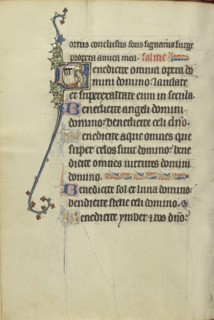 ortus conclusus fons signatus surge
propera amica mea
Benedicite omnia opera do
mini domino: laudate
et superexaltate eum in secula.
Benedicite angeli domini
domino: benedicite celi dño.
Benedicite aque omnes que
super celos sunt domino: bene
dicite omnes virtutes domini
domino.
Benedicite sol et luna domino:
benedicite stelle celi domino.
Benedicite ymber et ros dño: